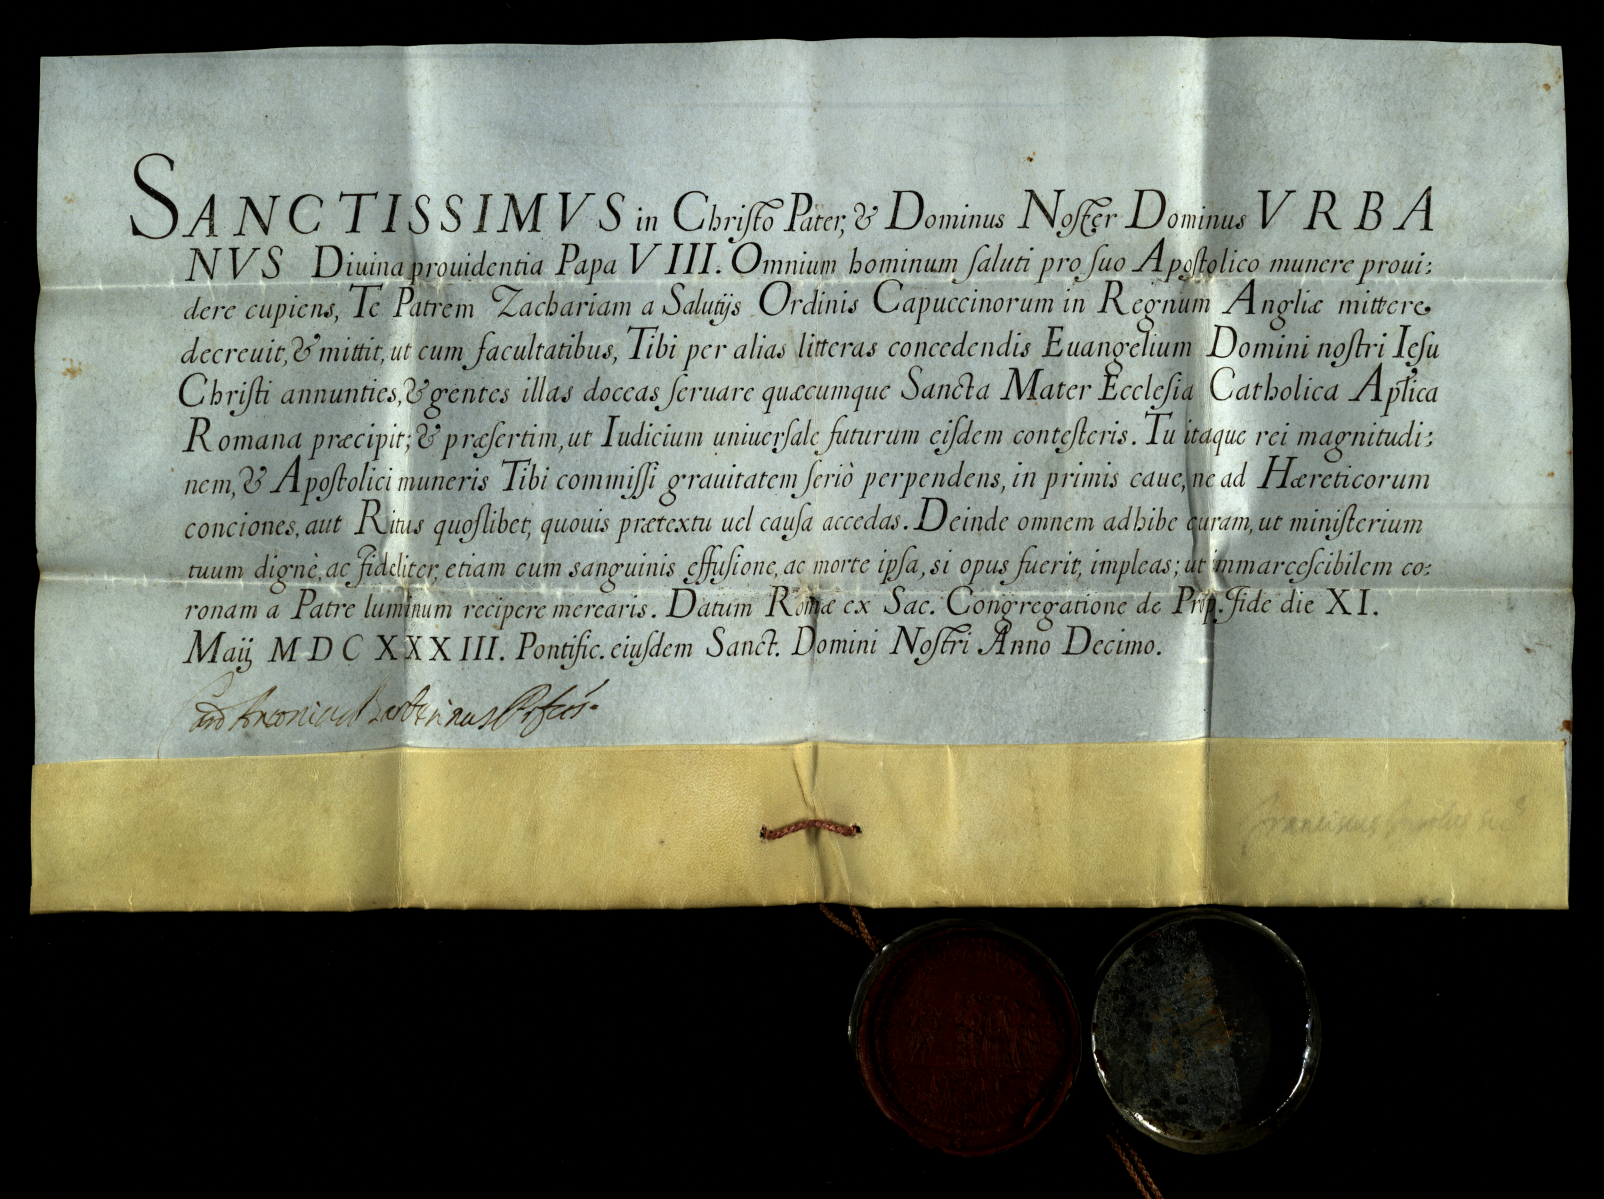 SANCTISSIMVS in Christo Pater, & Dominus Noster Dominus VRBA
NVS Diuina prouidentia Papa VIII. Omnium hominum saluti pro suo Apostolico munere proui:
dere cupiens, Te Patrem Zachariam a Salutijs Ordinis Capuccinorum in Regnum Angliæ mittere
decreuit, & mittit, ut cum facultatibus, Tibi per alias litteras concedendis Euangelium Domini nostri Iesu
Christi annunties, & gentes illas doceas seruare quæcumque Sancta Mater Ecclesia Catholica Aplica
Romana præcipit; & præsertim, ut Iudicium uniuersale futurum eisdem contesteris. Tu itaque rei magnitudi:
nem, & Apostolici muneris Tibi commissi grauitatem seriò perpendens, in primis caue, ne ad Hæreticorum
conciones, aut Ritus quoslibet, quouis prætextu uel causa accedas. Deinde omnem adhibe curam, ut ministerium
tuum dignè, ac fideliter, etiam cum sanguinis effusione, ac morte ipsa, si opus fuerit, impleas; ut immarcescibilem co:
ronam a Patre luminum recipere merearis. Datum Romæ ex Sac. Congregatione de Prop. Fide die XI.
Maij MDCXXXIII. Pontific. eiusdem Sanct. Domini Nostri Anno Decimo.
Card Antonius Barberinus
Franciscus